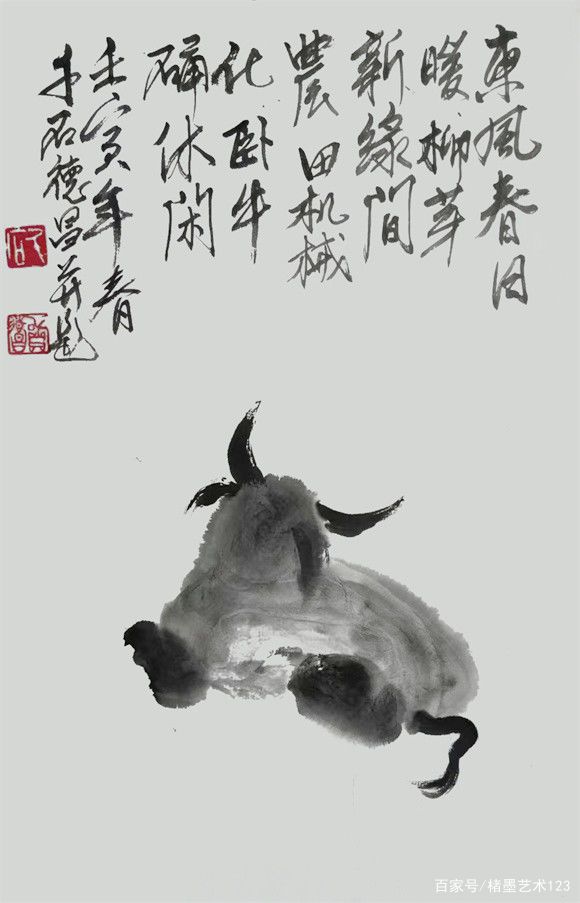 東風春日
暖柳芽
新綠間
農田机械
化卧牛
确休閑
壬寅年春
石德昌并题
百家号/楮墨艺术123